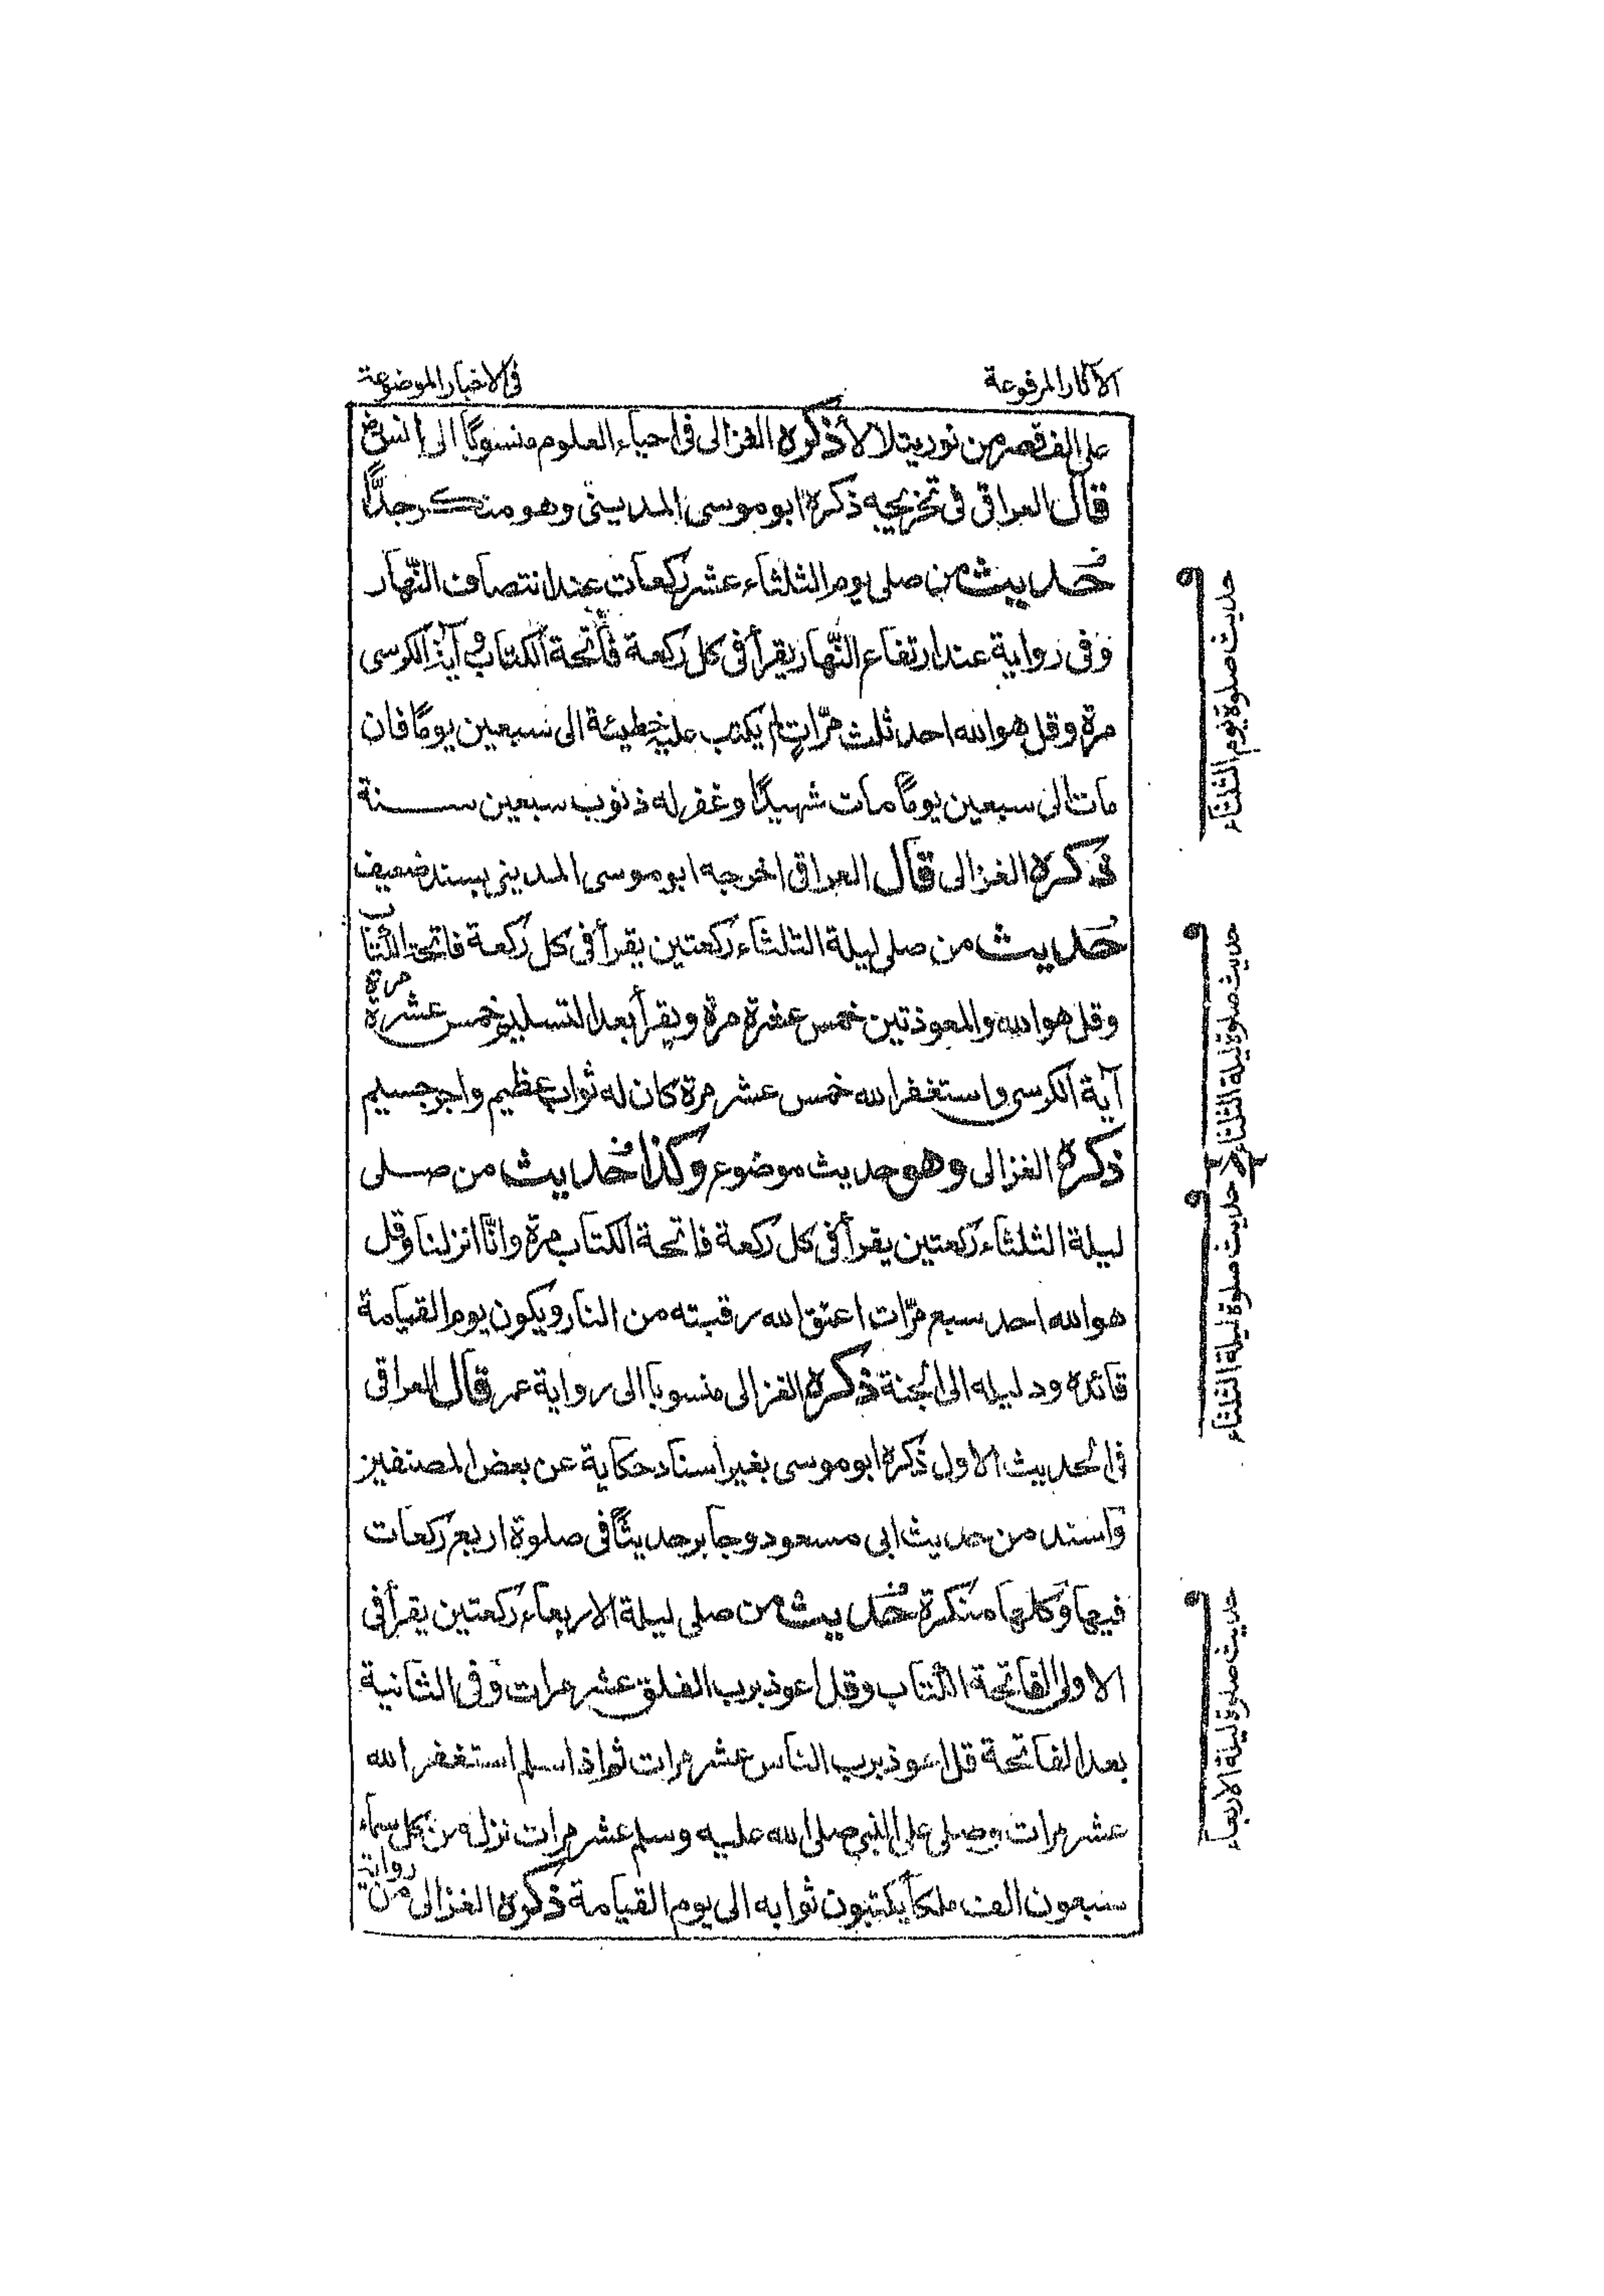 الآثار المرفوعة
فى الاخبار الموضوعة
على الف قصر من نور يتلالأ ذكره الغزالى فى احياء العلوم منسوبًا الى انس رض
قال العراقى فى تخريجه ذكره ابو موسى المدينى وهو منكر جدًّا
حديث من صلى يوم الثلثاء عشر ركعات عند انتصاف النّهار
وفى رواية عند ارتفاع النّهار يقرأ فى كل ركعة فاتحة الكتاب و آية الكرسى
مرة وقل هو الله احد ثلث مرّات لم يكتب عليه خطيئة الى سبعين يومًا فان
مات الى سبعين يومًا مات شهيدًا وغفر له ذنوب سبعين سنة
ذكره الغزالى قال العراقى اخرجه ابو موسى المدينى بسند ضعيف
حديث من صلى ليلة الثلثاء ركعتين يقرأ فى كل ركعة فاتحة الكتاب
وقل هو الله والمعوذتين خمس عشرة مرة ويقرأ بعد التسليم خمس عشرة مرة
آية الكرسى واستغفر الله خمس عشر مرة كان له ثواب عظيم واجر جسيم
ذكره الغزالى وهو حديث موضوع وكذا حديث من صلى
ليلة الثلثاء ركعتين يقرأ فى كل ركعة فاتحة الكتاب مرة وانّا انزلنا وقل
هو الله احد سبع مرّات اعتق الله رقبته من النار ويكون يوم القيامة
قائده ودليله الى الجنة ذكره الغزالى منسوبا الى رواية عمر قال العراقى
فى الحديث الاول ذكره ابو موسى بغير اسناد حكاية عن بعض المصنفين
واسند من حديث ابى مسعود وجابر حديثًا فى صلوة اربع ركعات
فيها وكلها منكرة حديث من صلى ليلة الاربعاء ركعتين يقرأ فى
الاولى الفاتحة الكتاب وقل اعوذ برب الفلق عشر مرات وفى الثانية
بعد الفاتحة قل اعوذ برب الناس عشر مرات ثم اذا سلم استغفر الله
عشر مرات وصلى على النبى صلى الله عليه وسلم عشر مرات نزل من كل سماء
سبعون الف ملكا يكتبون ثوابه الى يوم القيامة ذكره الغزالى من رواية
حديث صلوة يوم الثلثاء
حديث صلوة ليلة الثلثاء
٢٨٢
حديث صلوة ليلة الثلثاء
حديث صلوة ليلة الاربعاء